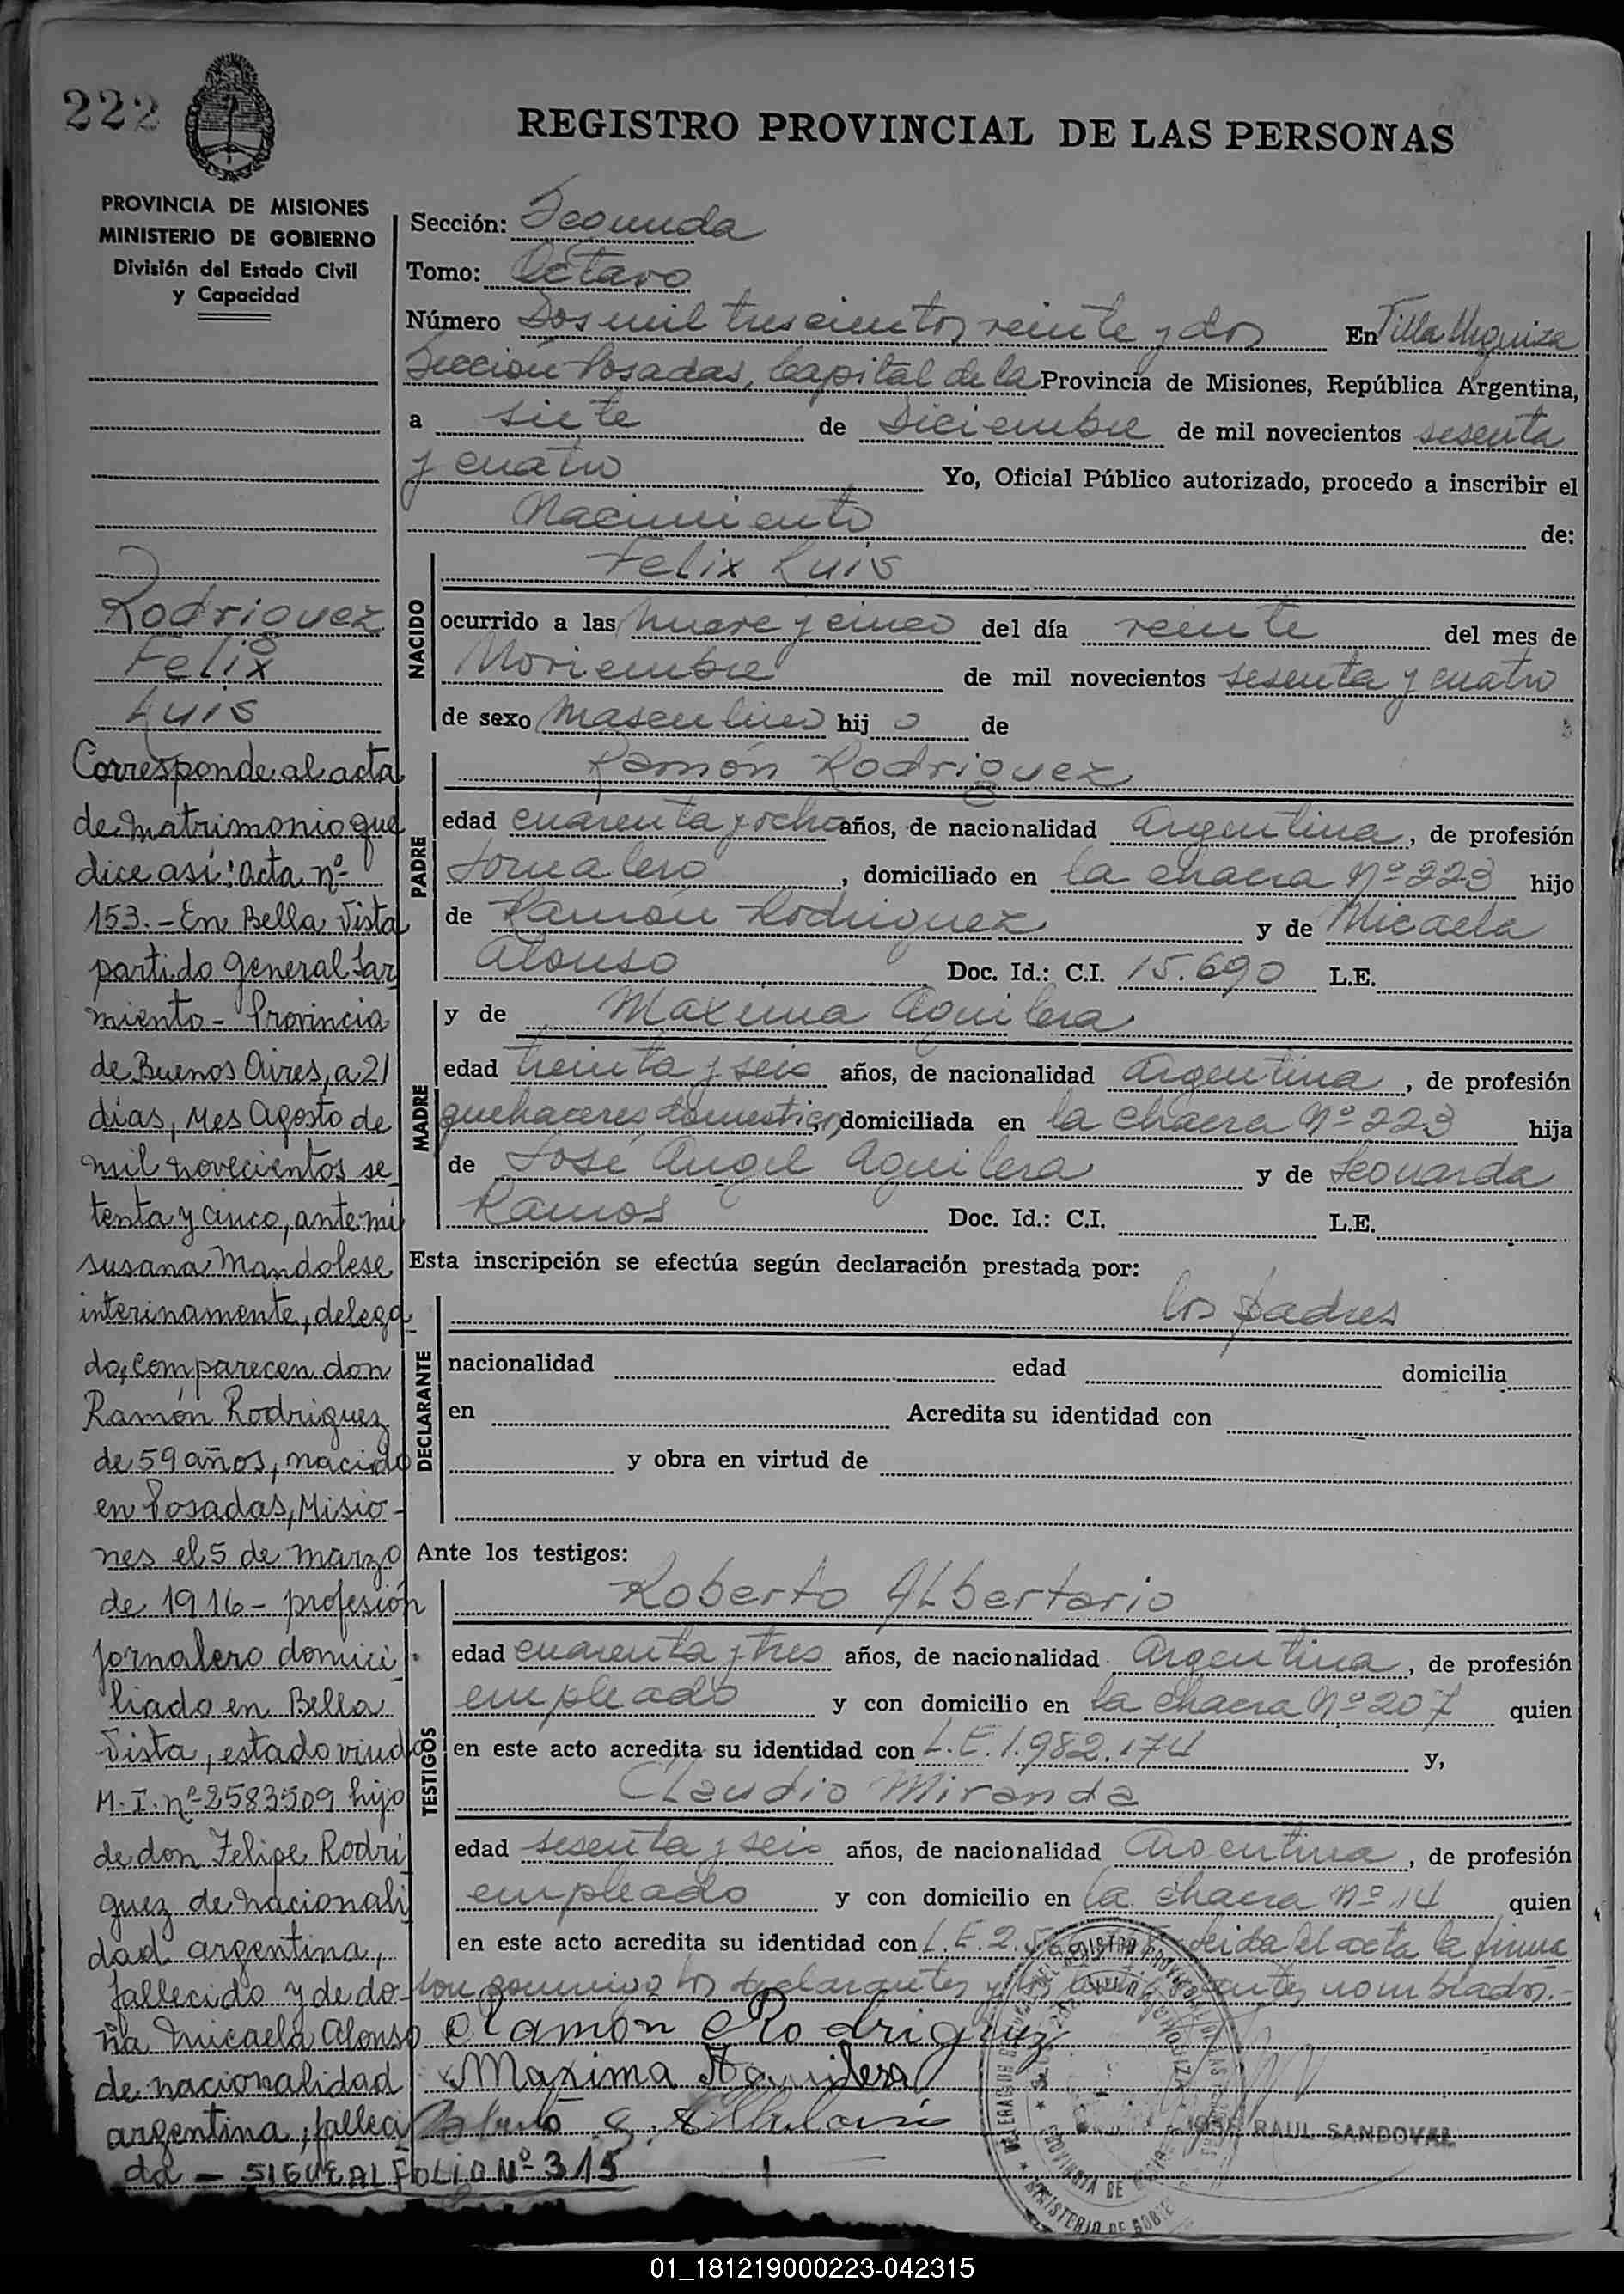 222
REGISTRO PROVINCIAL DE LAS PERSONAS
PROVINCIA DE MISIONES
MINISTERIO DE GOBIERNO
División del Estado Civil
y Capacidad
Rodriguez
Felix
Luis
Corresponde al acta
de matrimonio que
dice asi: acta nº
153.- En Bella Vista
partido General Sar
miento - Provincia
de Buenos Aires, a 21
dias, Mes Agosto de
mil novecientos se
tenta y cinco, ante mi
susana Mandolese
interinamente, delega
da, comparecen don
Ramón Rodriguez
de 59 años, nacido
en Posadas, Misio-
nes el 5 de marzo
de 1916 - profesión
jornalero domici
liado en Bella
Vista, estado viudo
M.I. nº 2583509 hijo
de don Felipe Rodri
guez de nacionali
dad argentina,
fallecido y de do-
ña Micaela Alonso
de nacionalidad
argentina, falleci
da - SIGUE AL FOLIO Nº 315
Sección: Segunda
Tomo: Octavo
Número Dos mil trescientos veinte y dos En Villa Urquiza
Sección Posadas, Capital de la Provincia de Misiones, República Argentina,
a siete de Diciembre de mil novecientos sesenta
y cuatro Yo, Oficial Público autorizado, procedo a inscribir el
Nacimiento de:
NACIDO
Felix Luis
ocurrido a las nueve y cinco del día veinte del mes de
Noviembre de mil novecientos sesenta y cuatro
de sexo masculino hij o de
PADRE
Ramón Rodriguez
edad cuarenta y ocho años, de nacionalidad Argentina, de profesión
Jornalero, domiciliado en la chacra Nº 223 hijo
de Ramón Rodriguez y de Micaela
Alonso Doc. Id.: C.I. 15.690 L.E.
MADRE
y de Maxima Aguilera
edad treinta y seis años, de nacionalidad Argentina, de profesión
quehaceres domesticos domiciliada en la chacra Nº 223 hija
de José Angel Aguilera y de Leonarda
Ramos Doc. Id.: C.I. L.E.
Esta inscripción se efectúa según declaración prestada por:
DECLARANTE
los padres
nacionalidad edad domicilia
en Acredita su identidad con
y obra en virtud de
Ante los testigos:
TESTIGOS
Roberto Albertario
edad cuarenta y tres años, de nacionalidad Argentina, de profesión
empleado y con domicilio en la chacra Nº 207 quien
en este acto acredita su identidad con L.E. 1.982.174 y,
Claudio Miranda
edad sesenta y seis años, de nacionalidad Argentina, de profesión
empleado y con domicilio en la chacra Nº 14 quien
en este acto acredita su identidad con L.E. 2.5 Leida el acta la firma
con conmigo los declarantes y los nombrados.-
Ramón Rodriguez
Maxima Aguilera
JOSE RAUL SANDOVAL
01_181219000223-042315